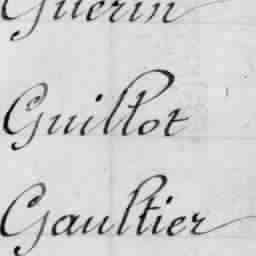 Guerin
Guillot
Gaultier